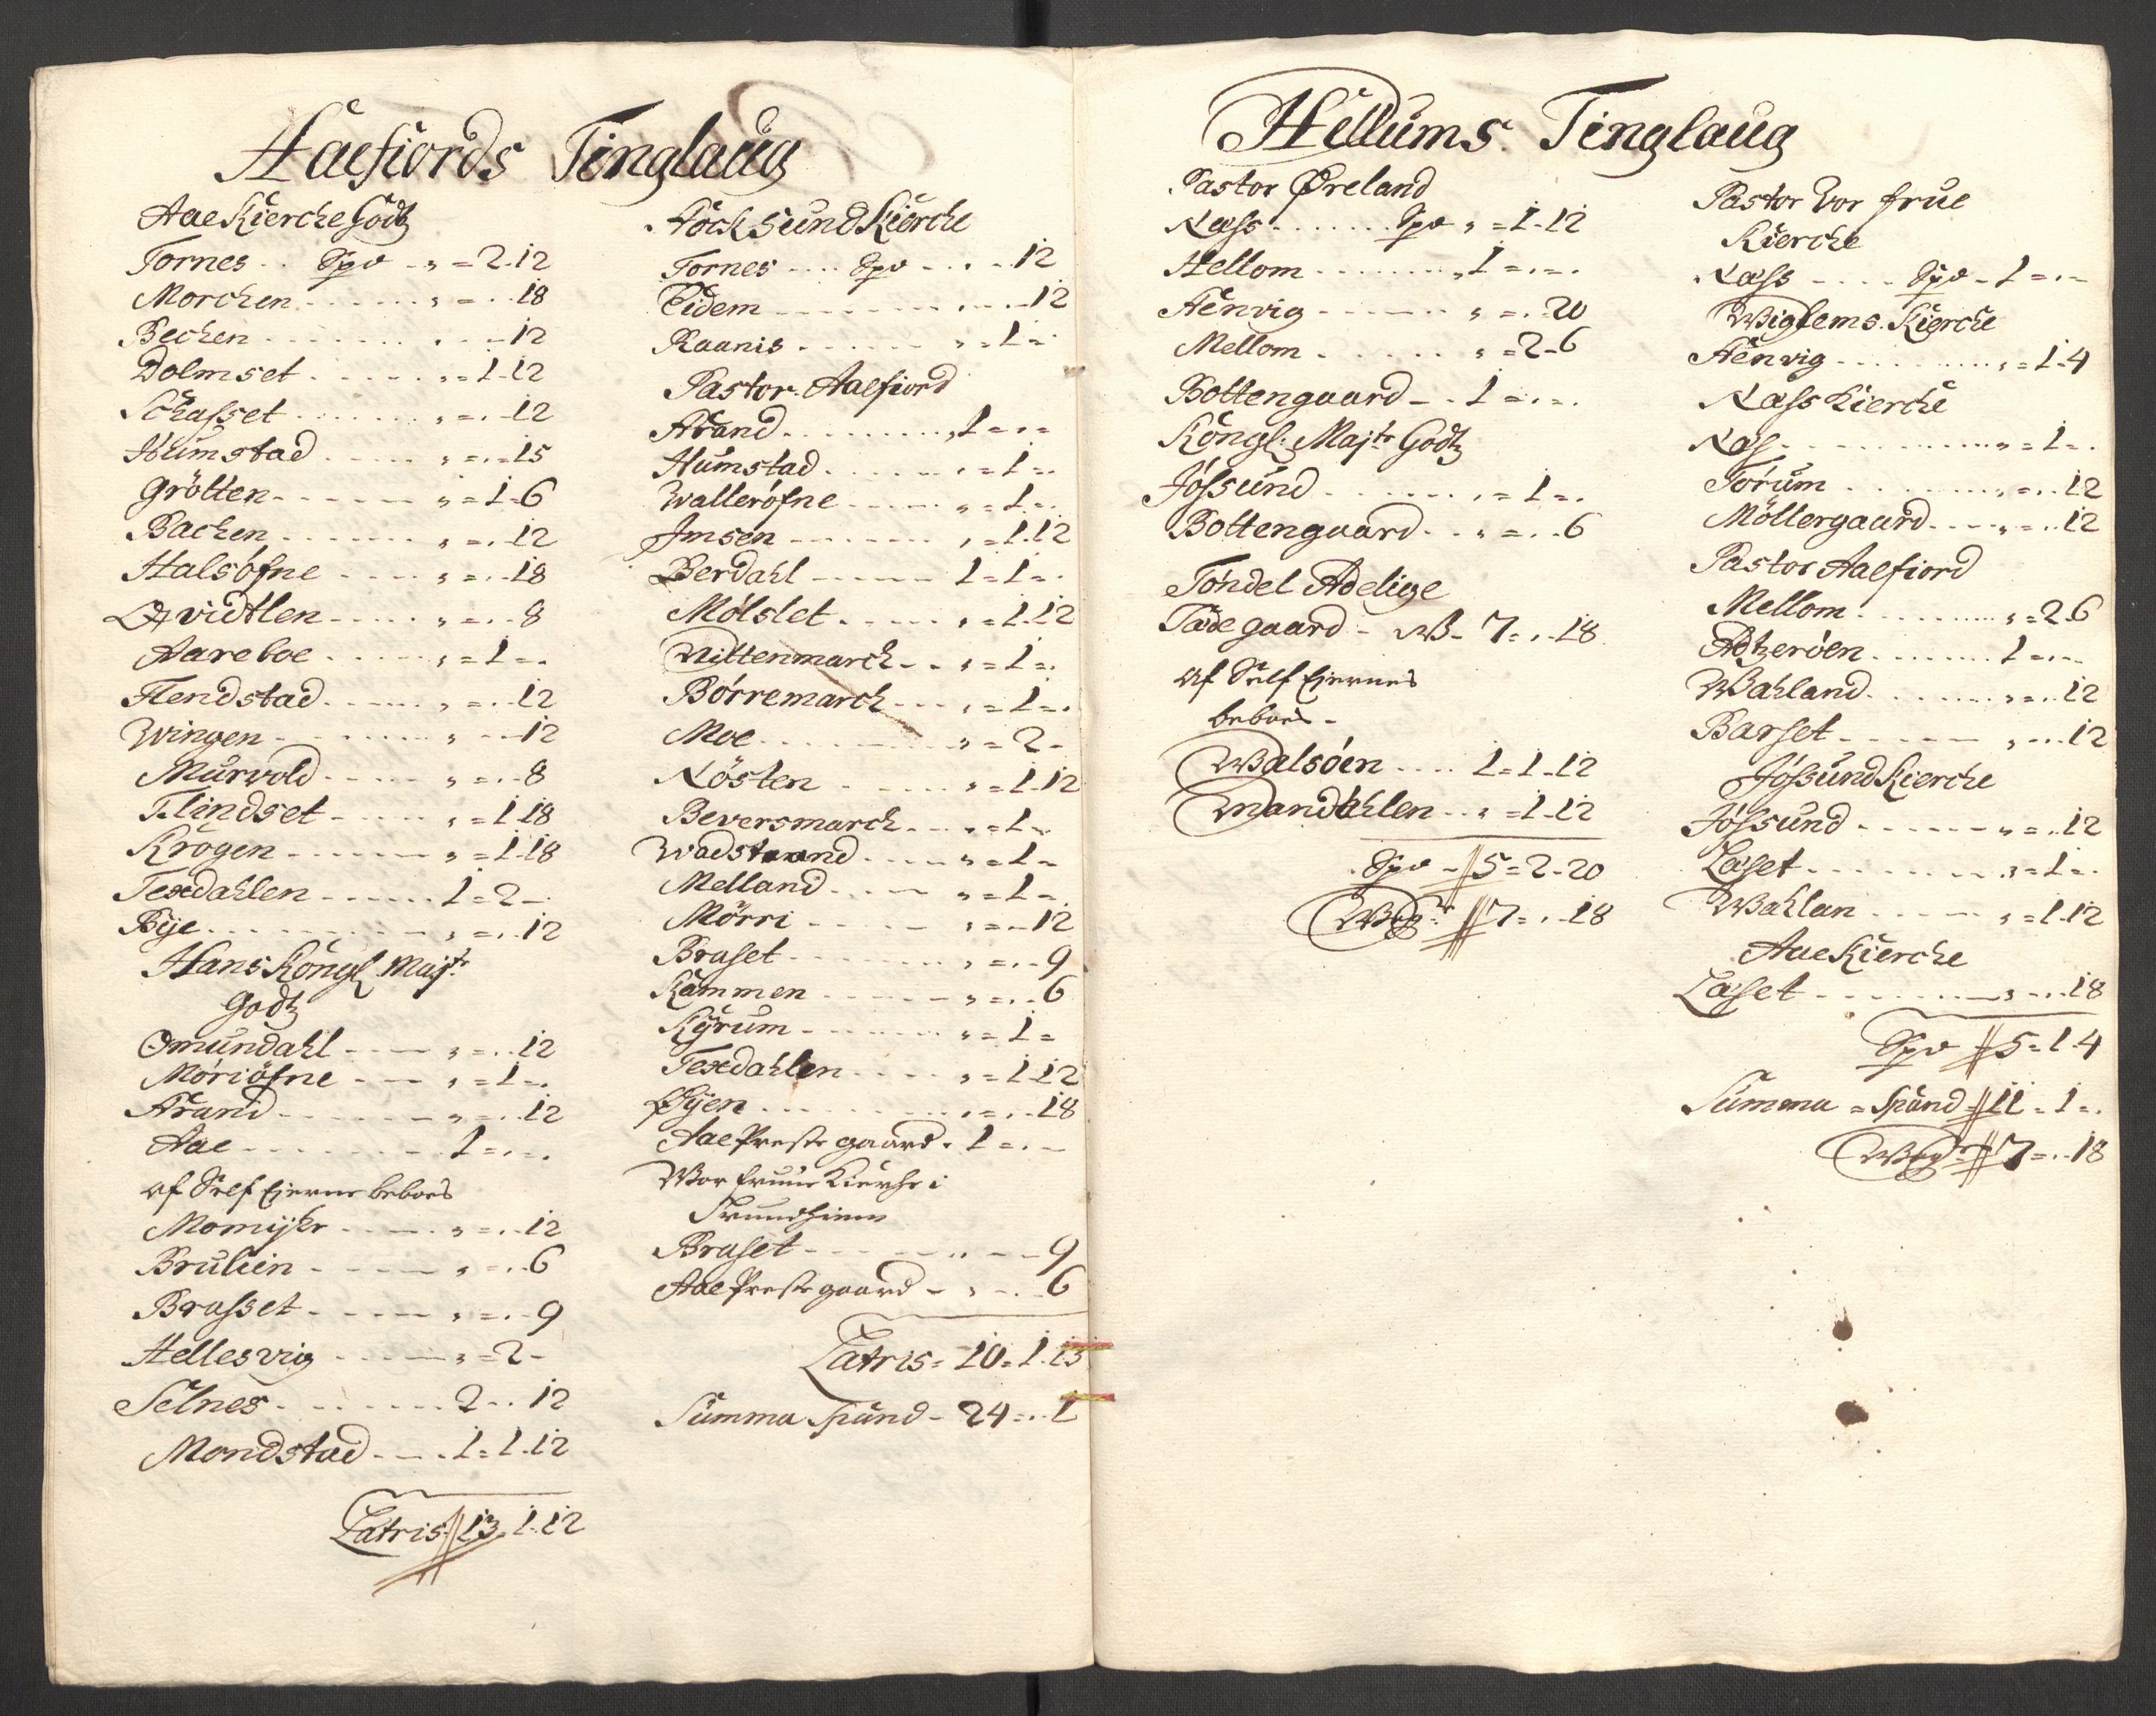 Aaefiords Tinglaug
Aae Kierche Godtz
Tornes .. Spd - „ = 2-12
Morchen ....... „ = . - 18
Bechen ....... . - - 12
Dolmset ...... „ = 1-12
Schasset ....... „ = . - 12
Humstad ..... „ = . - 15
Grötten - - - - - „ = 1-6
Bachen ....... „ = . - 12
Halsöfne - - - - „ = . - 18
Qvidtlen - - - - - „ = . - 8
Aareboe ...... „ = 1 = .
Flendstad ...... „ = . - 12
Wingen - - - - - „ - - - 12
Murvold - - - - - „ = . - 8
Flindset - - - - - „ = 1-18
Krogen - - - - - „ = 1-18
Texdahlen - - - - - 1 = 2 - .
Bye ......... „ = . - 12
Hans Kongl Majts
Godtz
Omundahl - - - - „ = . - 12
Moriöfne - - - „ = 1 - .
Årand - - - - - - „ = . - 12
Aae - - - - - - - 1 = . - .
af Self Ejerne beboes
Momyhr - - - - - „ = . - 12
Brulien - - - - - „ = . - 6
Brasset - - - - - „ = . - 9
Hellesvig - - - - - „ = 2 -
Selnes - - - - - - 2 - . 12
Mondstad - - - . 1 = 1-12
Latris 13. 1-12
Höcksund Kierche
Tornes .... Spd - . . - 12
Eidem ........ . . - - 12
Raanis ....... „ = 1 = .
Pastor Aaefiord
Årand ......... „ 1 = . =
Humstad ........ „ = 1 = .
Walleröfne - - - - - „ = 1 - .
Imsen - - - - - - „ = 1-12
Berdahl - - - - - 1 = 1 = .
Mölslet ...... „ = 1-12
Nittenmarch - . „ = 1 = .
Börremarch - - - „ = 1 = .
Moe .......... „ = 2 -
Nösten ....... „ = 1-12
Beversmarch - - - „ = 1 - .
Wadstrand .... „ = 1 -
Melland - - - - „ = 1 - .
Mörri - - - - - „ = - 12
Braset - - - - - - „ = . - 9
Kammen - - - - - „ = . - 6
Kyrum - - - - - - „ = 1 =
Texdahlen - - - - „ = 1-12
Öyen .......... „ = . - 18
Aae Prestegaard . 1 = . -
Wor Fruue Kirche i
Trundhiem
Braset - - - - - „ - - 9
Aae Prestegaard - „ - . - 6
Latris = 10 = 1-15
Summa Spand - 24 = . - 1
Hellums Tinglaug
Pastor Öreland
Næss ...... Spd „ = 1-12
Hellom ........ „ 1 = . - .
Henvig - - - - - „ = . - 20
Mellom ....... „ = 2-6
Bottengaard - . 1 = . - .
Kongl. Majts Godtz
Jössund ........ „ = 1 = .
Bottengaard . . „ = . - 6
Töndel Adelige
Sædegaard - W - 7 = . - 18
Af Self Ejernes
beboes -
Walsöen .... 1 = 1-12
Mandahlen . . „ = 1-12
Spd - 5 = 2-20
Wog: 7 = . - 18
Pastor Vor frue
Kierche
Næss - - - - Spd - 1 = . -
Wiglems Kierche
Henvig .......... „ = 1-4
Næss Kierche
Næs ............ „ = 1 = .
Torum ......... „ = . - 12
Möllergaard - - - „ = . - 12
Pastor Aaefiord
Mellom .......... „ = 2-6
Adtzeröen ....... 1 = . - .
Wahland ....... „ = . - 12
Barset - - - - - „ - . - 12
Jössund Kierche
Jössund - - - - - - „ = . - 12
Laset ......... „ = 1 = .
Wahlan - - - - - „ = 1-12
Aae Kierche
Laset - - - - - - - „ - . - 18
Spd 5 = 1-4
Summa = Spand 11 = 1 = .
Wog: 7 = . - 18